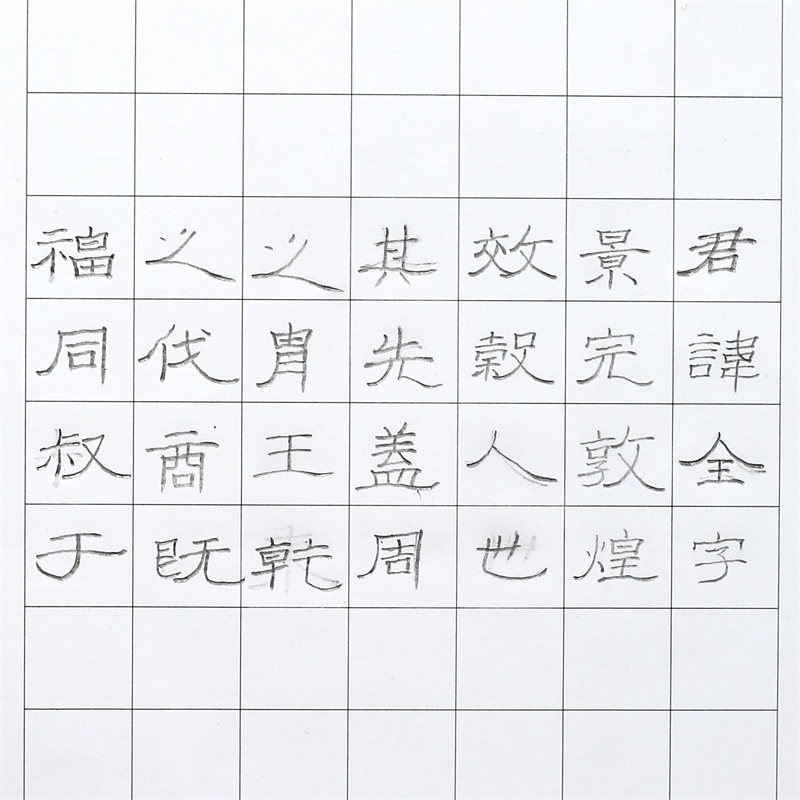 君諱全字
景完敦煌
效穀人世
其先盖周
之胄王乾
之伐商既
福同叔于